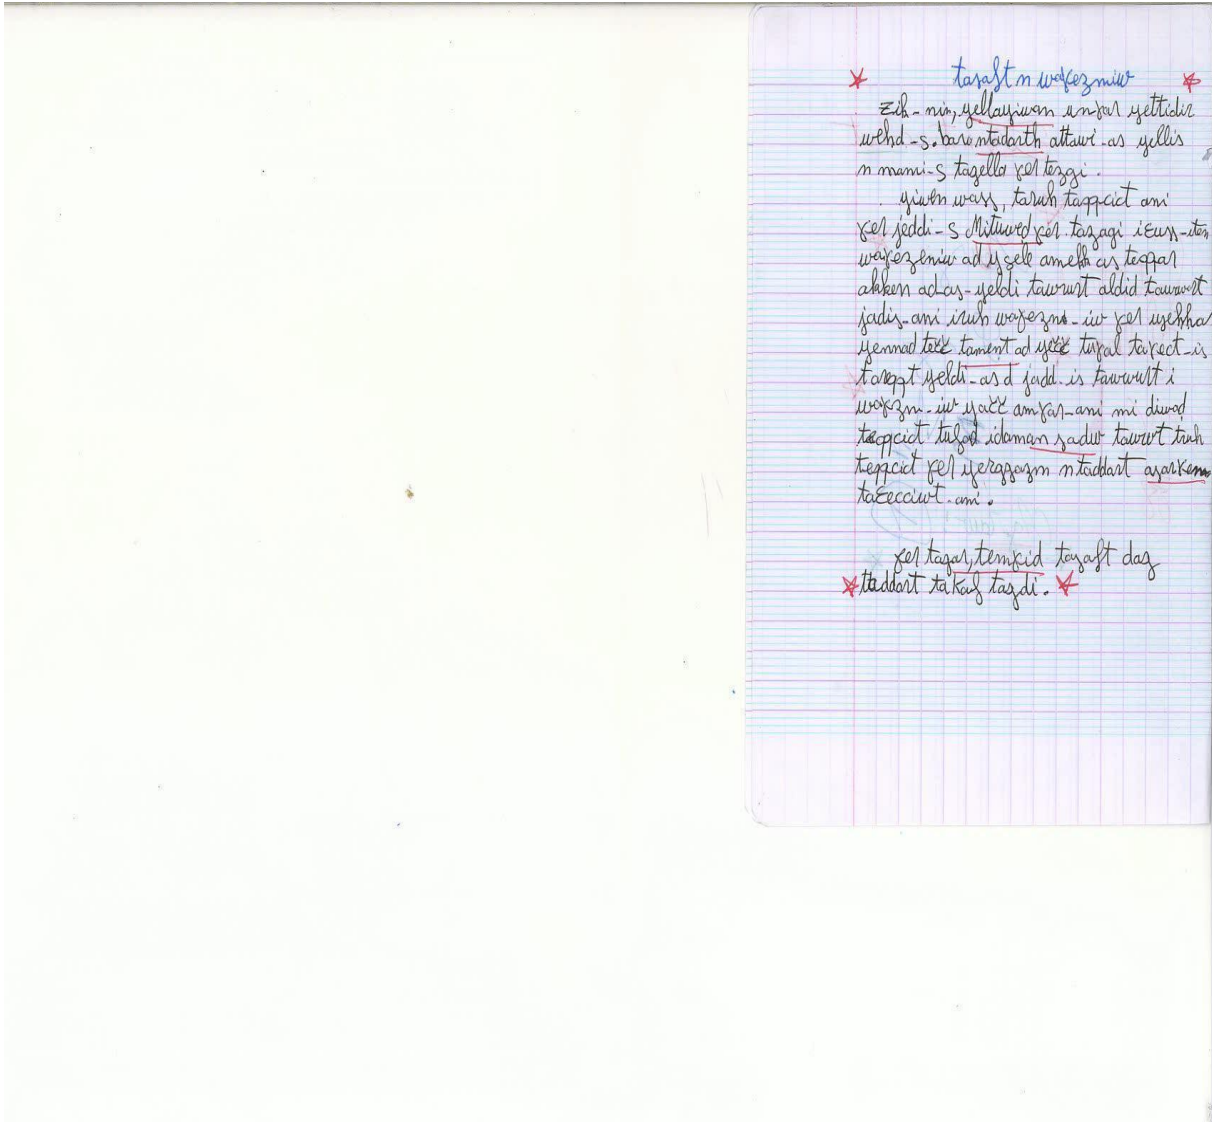 tasaft n waɣezniw
Zik-nin, yellayiwen umɣar yettidir
wehd-s. bara ntadarth attawi-as yellis
n mami-s tagella ɣel tezgi.
yiwen wass, taruh taqqcict ani
ɣel jeddi-s Mituwed ɣer tazagi iɛuss-iten
waɣezeniw ad ysele amekk as teqqar
akken ad as-yeldi tawurt aldid tawwurt
jadis-ani iruh waɣezni-iw ɣel uyekka
yennad tečč tament ad yečč tuɣal taɣect-is
taraqqt yeldi-as d jadd-is tawwurt i
waɣzn-iw yačč amɣar-ani mi diwed
taqqcict tufad idaman sadw tawurt truh
teqqcict ɣel yergqazn ntaddart azarɣen
taɛecciwt-ani.
ɣer tagar, temɣid tasaft dag
taddart takaf tazdi.